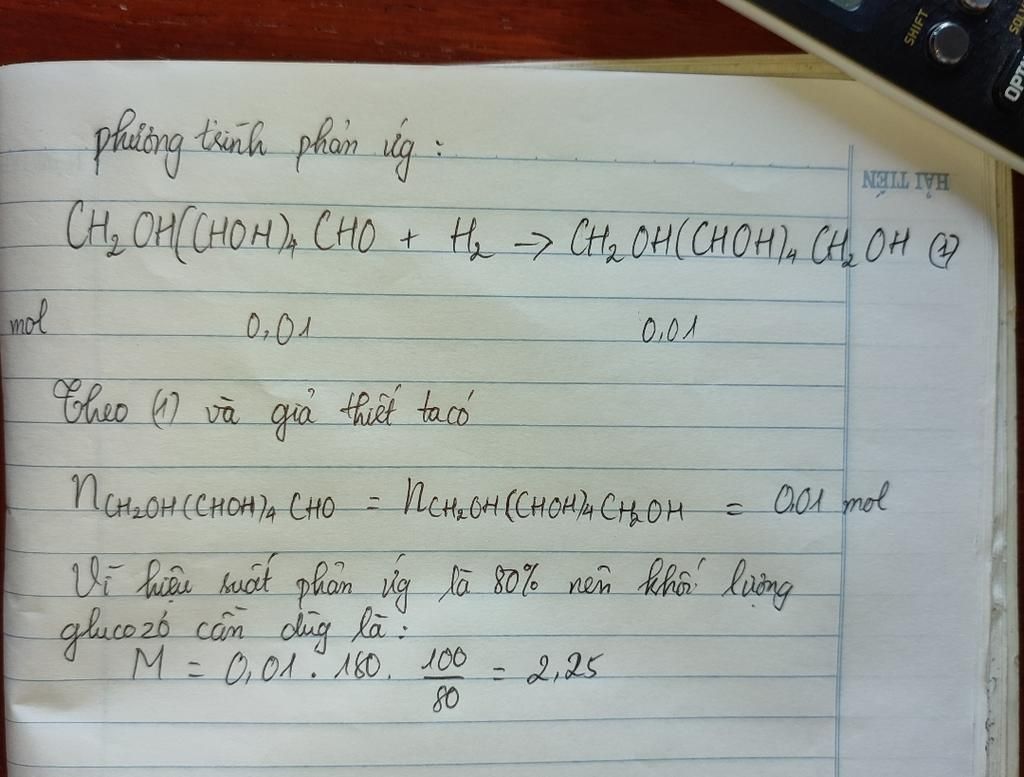 SHIFT
SOL
OPTN
HẢI TIẾN
phương trình phản ứg :
CH₂OH(CHOH)₄CHO + H₂ → CH₂OH(CHOH)₄CH₂OH (1)
mol 0,01 0,01
Theo (1) và giả thiết ta có
nCH₂OH(CHOH)₄CHO = nCH₂OH(CHOH)₄CH₂OH = 0,01 mol
Vì hiệu suất phản ứg là 80% nên khối lượng
glucozơ cần dùg là :
M = 0,01 . 180 . 100/80 = 2,25